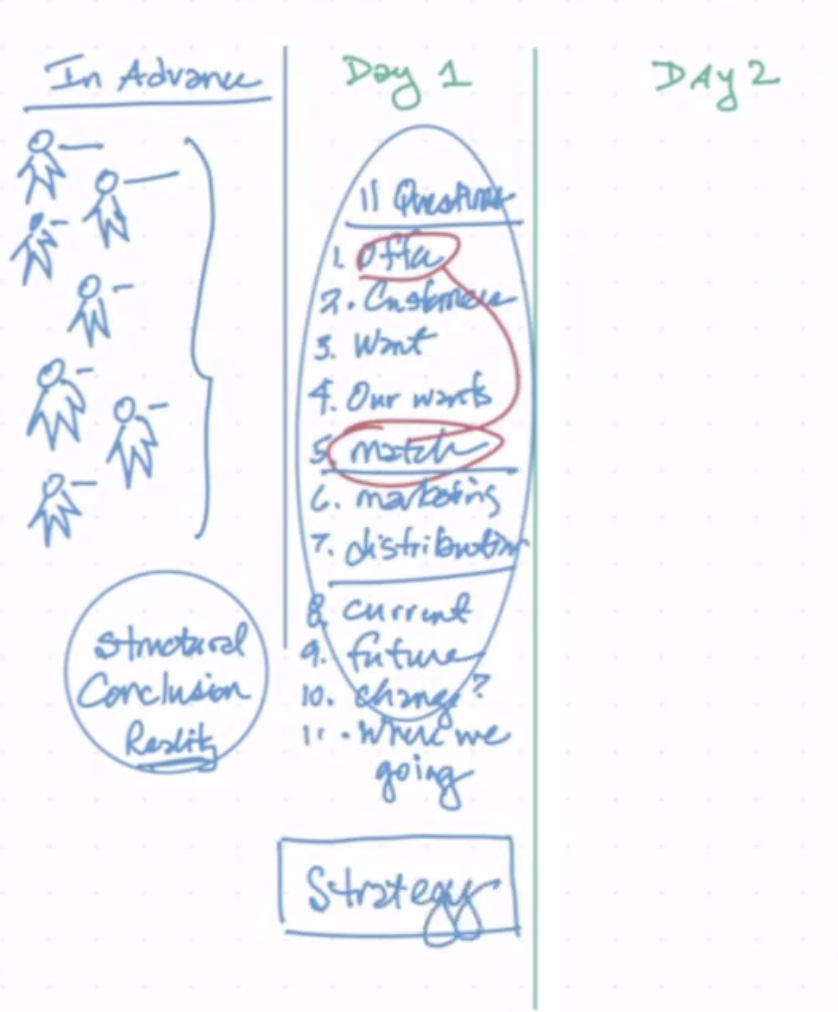 In Advance
Structural
Conclusion
Reality
Day 1
11 Questions
1. Offer
2. Customers
3. Want
4. Our wants
5. match
6. marketing
7. distribution
8. current
9. future
10. change?
11. Where we
going
Strategy
DAy 2